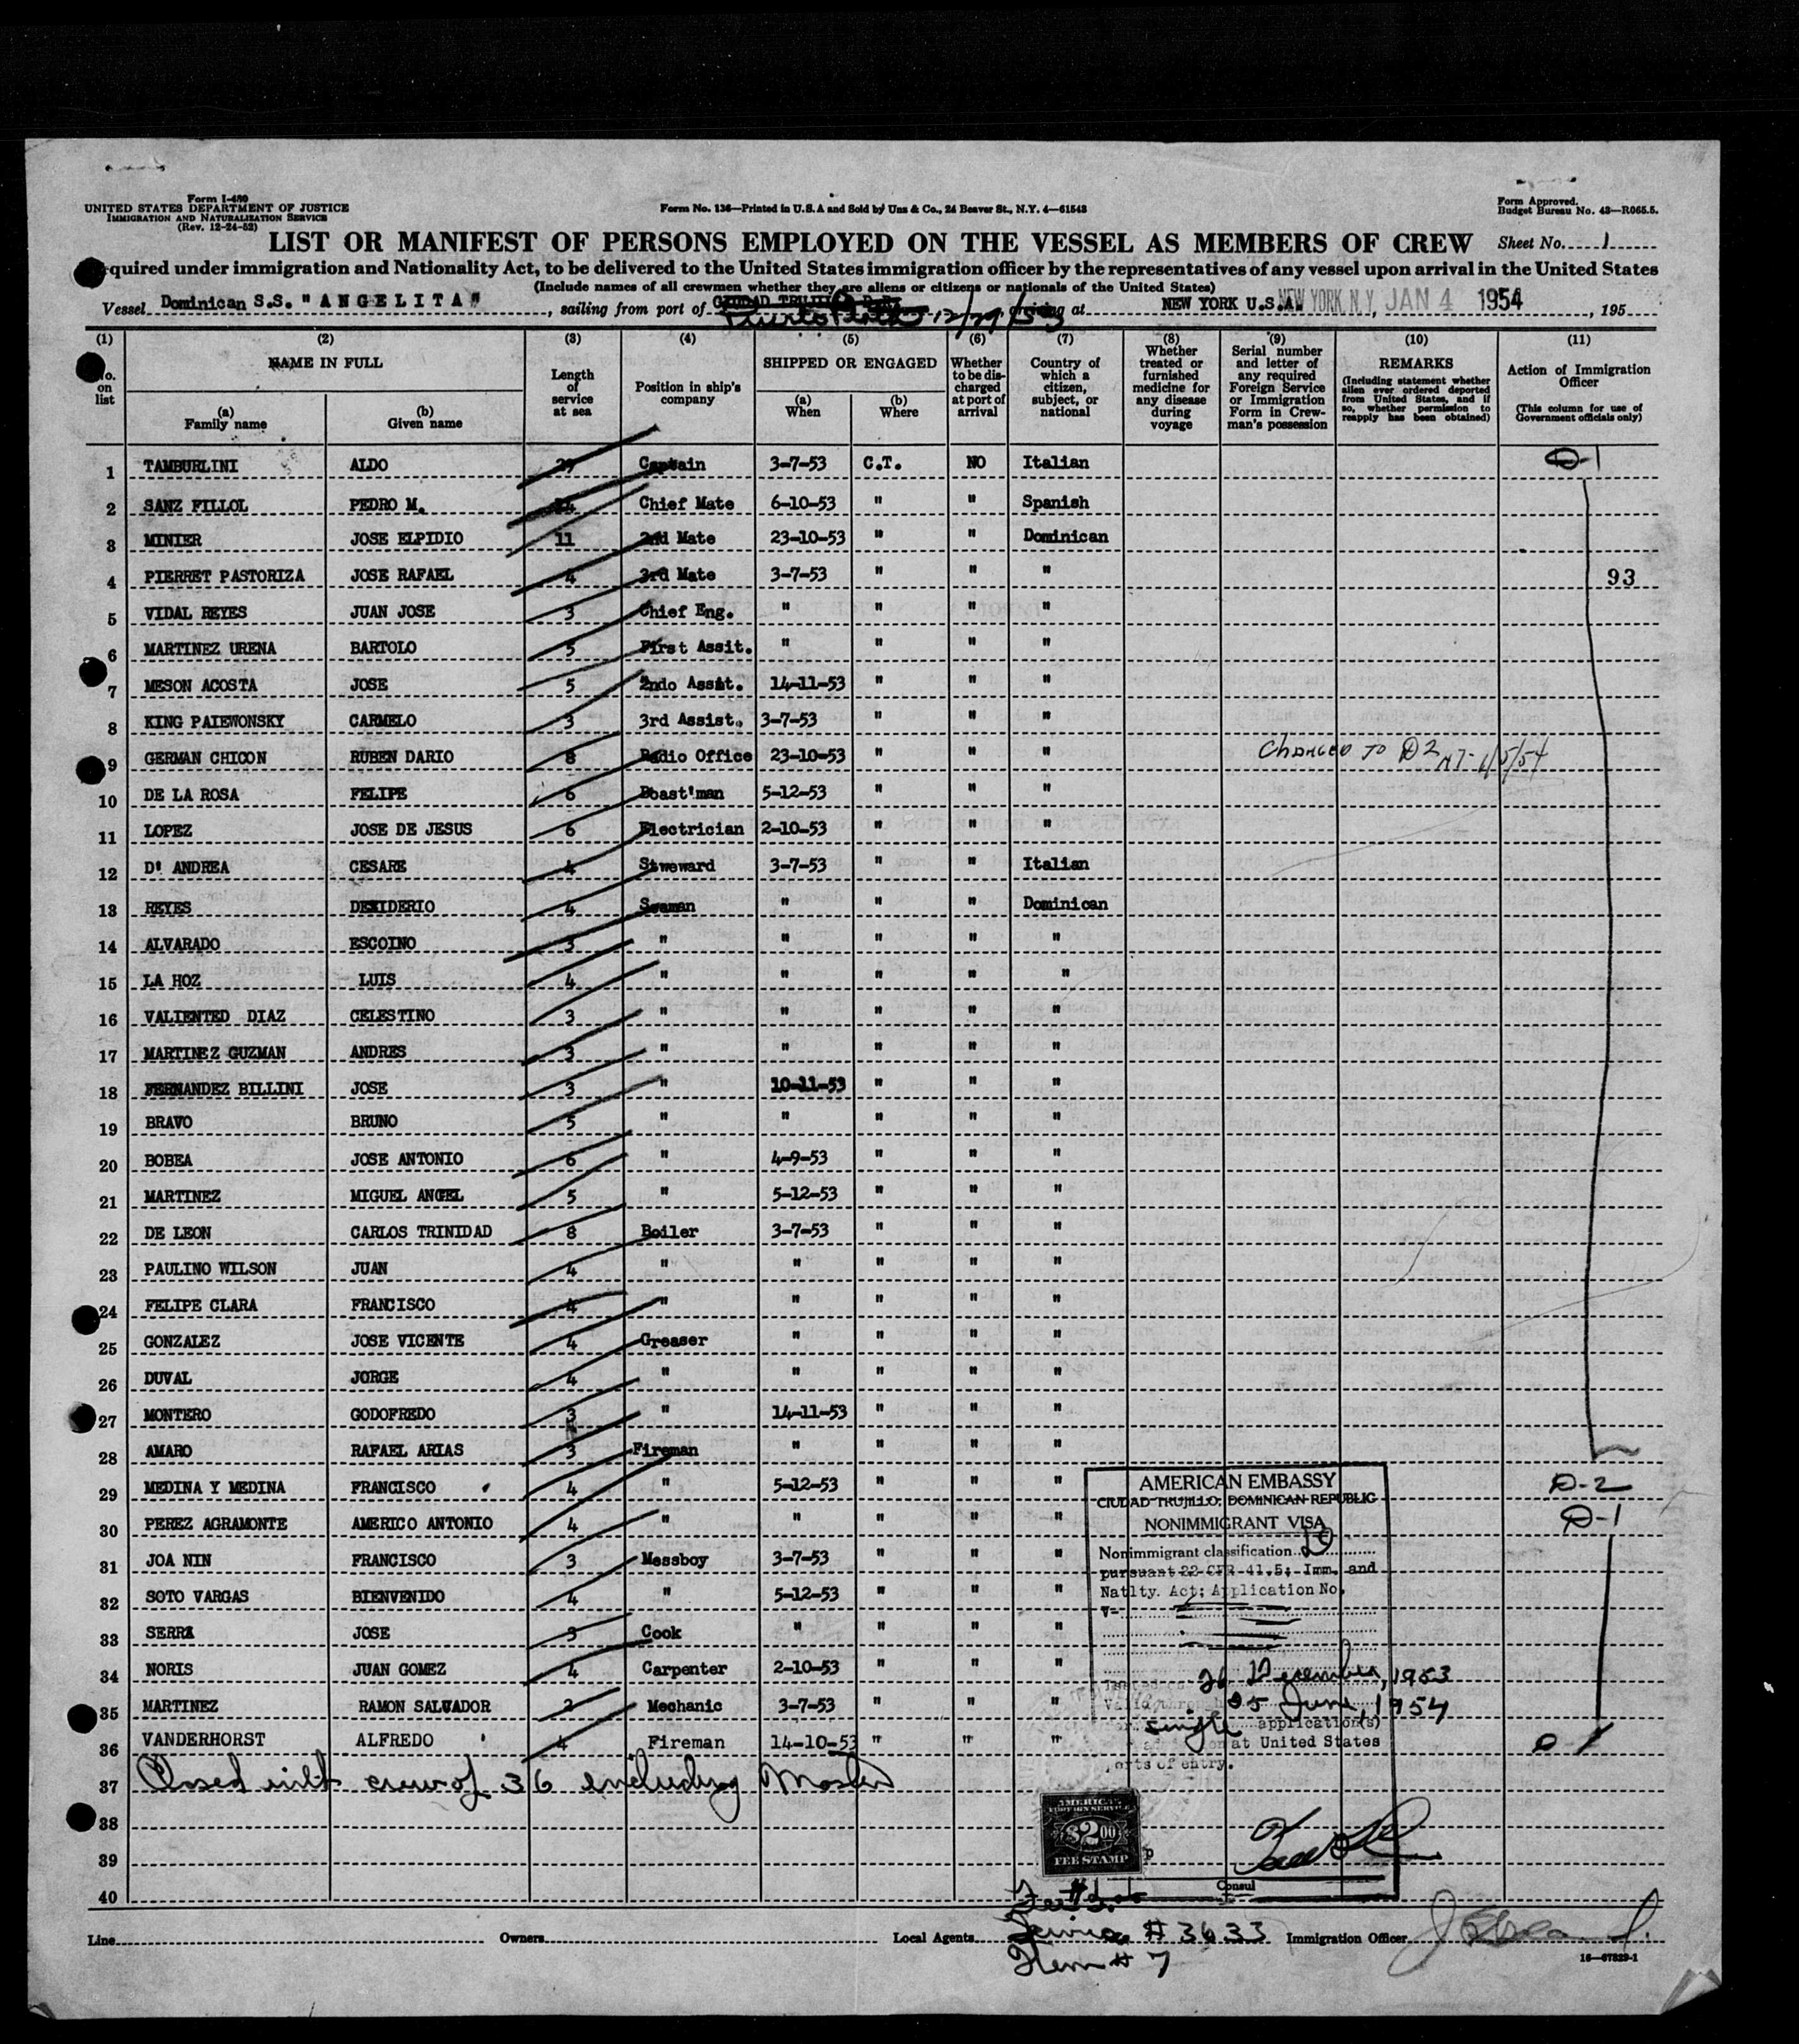 Form I-480
UNITED STATES DEPARTMENT OF JUSTICE
IMMIGRATION AND NATURALIZATION SERVICE
(Rev. 12-24-52)
Form No. 136—Printed in U.S.A and Sold by Unz & Co., 24 Beaver St., N.Y. 4—61543
Form Approved.
Budget Bureau No. 43—R065.5.
LIST OR MANIFEST OF PERSONS EMPLOYED ON THE VESSEL AS MEMBERS OF CREW Sheet No. 1
quired under immigration and Nationality Act, to be delivered to the United States immigration officer by the representatives of any vessel upon arrival in the United States
(Include names of all crewmen whether they are aliens or citizens or nationals of the United States)
Vessel Dominican S.S. "ANGELITA", sailing from port of CIUDAD TRUJILLO D.R. Puerto Plata 12/29/53, arriving at NEW YORK U.S.A NEW YORK, N.Y. JAN 4 1954, 195
(1) (2) (3) (4) (5) (6) (7) (8) (9) (10) (11)
No. on list
NAME IN FULL
(a) Family name
(b) Given name
Length of service at sea
Position in ship's company
SHIPPED OR ENGAGED
(a) When
(b) Where
Whether to be discharged at port of arrival
Country of which a citizen, subject, or national
Whether treated or furnished medicine for any disease during voyage
Serial number and letter of any required Foreign Service or Immigration Form in Crewman's possession
REMARKS
(Including statement whether alien ever ordered deported from United States, and if so, whether permission to reapply has been obtained)
Action of Immigration Officer
(This column for use of Government officials only)
1 TAMBURLINI ALDO 29 Captain 3-7-53 C.T. NO Italian D-1
2 SANZ FILLOL PEDRO M. 24 Chief Mate 6-10-53 " " Spanish
3 MINIER JOSE ELPIDIO 11 2nd Mate 23-10-53 " " Dominican
4 PIERRET PASTORIZA JOSE RAFAEL 4 3rd Mate 3-7-53 " " " 93
5 VIDAL REYES JUAN JOSE 3 Chief Eng. " " " "
6 MARTINEZ URENA BARTOLO 5 First Assit. " " " "
7 MESON ACOSTA JOSE 5 2ndo Assit. 14-11-53 " " "
8 KING PAIEWONSKY CARMELO 3 3rd Assist. 3-7-53 " " "
9 GERMAN CHICON RUBEN DARIO 8 Radio Office 23-10-53 " " " Changed to D2 1/5/54
10 DE LA ROSA FELIPE 6 Boast'man 5-12-53 " " "
11 LOPEZ JOSE DE JESUS 6 Electrician 2-10-53 " " "
12 D' ANDREA CESARE 4 Stweward 3-7-53 " " Italian
13 REYES DEXIDERIO 4 Seaman " " " Dominican
14 ALVARADO ESCOINO 3 " " " " "
15 LA HOZ LUIS 4 " " " " "
16 VALIENTED DIAZ CELESTINO 3 " " " " "
17 MARTINEZ GUZMAN ANDRES 3 " " " " "
18 FERNANDEZ BILLINI JOSE 3 " 10-11-53 " " "
19 BRAVO BRUNO 5 " " " " "
20 BOBEA JOSE ANTONIO 6 " 4-9-53 " " "
21 MARTINEZ MIGUEL ANGEL 5 " 5-12-53 " " "
22 DE LEON CARLOS TRINIDAD 8 Boiler 3-7-53 " " "
23 PAULINO WILSON JUAN 4 " " " " "
24 FELIPE CLARA FRANCISCO 4 " " " " "
25 GONZALEZ JOSE VICENTE 4 Greaser " " " "
26 DUVAL JORGE 4 " " " " "
27 MONTERO GODOFREDO 3 " 14-11-53 " " "
28 AMARO RAFAEL ARIAS 3 Fireman " " " "
29 MEDINA Y MEDINA FRANCISCO 4 " 5-12-53 " " " D-2
30 PEREZ AGRAMONTE AMERICO ANTONIO 4 " " " " " D-1
31 JOA NIN FRANCISCO 3 Messboy 3-7-53 " " "
32 SOTO VARGAS BIENVENIDO 4 " 5-12-53 " " "
33 SERRA JOSE 3 Cook " " " "
34 NORIS JUAN GOMEZ 4 Carpenter 2-10-53 " " "
35 MARTINEZ RAMON SALVADOR 2 Mechanic 3-7-53 " " "
36 VANDERHORST ALFREDO 4 Fireman 14-10-53 " " " D-1
37 Closed with crew of 36 including Master
38
39
40
AMERICAN EMBASSY
CIUDAD TRUJILLO, DOMINICAN REPUBLIC
NONIMMIGRANT VISA
Nonimmigrant classification D
pursuant 22 CFR 41.5; Imm. and
Natlty. Act; Application No.
V-
Issued on 26 December, 1953
Valid through 25 June, 1954
for single application(s)
at United States
ports of entry.
Consul
AMERICAN
FOREIGN SERVICE
$2.00
FEE STAMP
Service # 3633
Item # 7
Line
Owners
Local Agents
Immigration Officer
16—67829-1